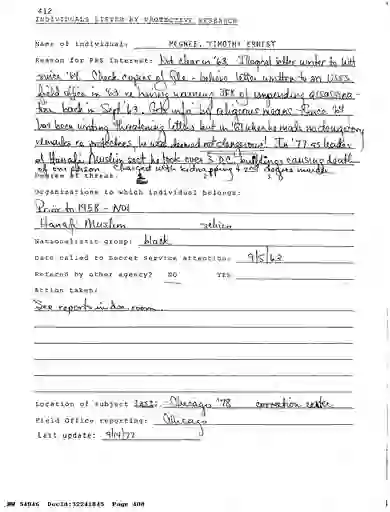 412
INDIVIDUALS LISTED BY PROTECTIVE RESEARCH
Name of individual: MCGHEE, TIMOTHY ERNIST
Reason for PRS interest: Not clear in '63. Illogical letter writer to WH
since '54. Check copies of file - believe letter written to an USSS
field office in '63 re having warning JFK of impending assassina-
tion back in Sept '63. Gets info by religious means. Since '54
has been writing threatening letters but in when he made no dangerous
remarks re protectees, he was deemed not dangerous. In '77 as leader
of Hanafi Muslim sect he took over 3 D.C. buildings causing death
of one person. Charged with kidnapping & 2nd degree murder.
Degree of threat: 1 2 3
Organizations to which individual belongs:
Prior to 1958 - NOI
Hanafi Muslim
Nationalistic group: black
Date called to Secret Service attention: 9/5/63
Refered by other agency? NO YES
Action taken:
See reports in doc. room.
Location of subject last: - Chicago '78 correction center
Field Office reporting: Chicago
Last update: 9/14/77
NW 54846 DocId:32241845 Page 408